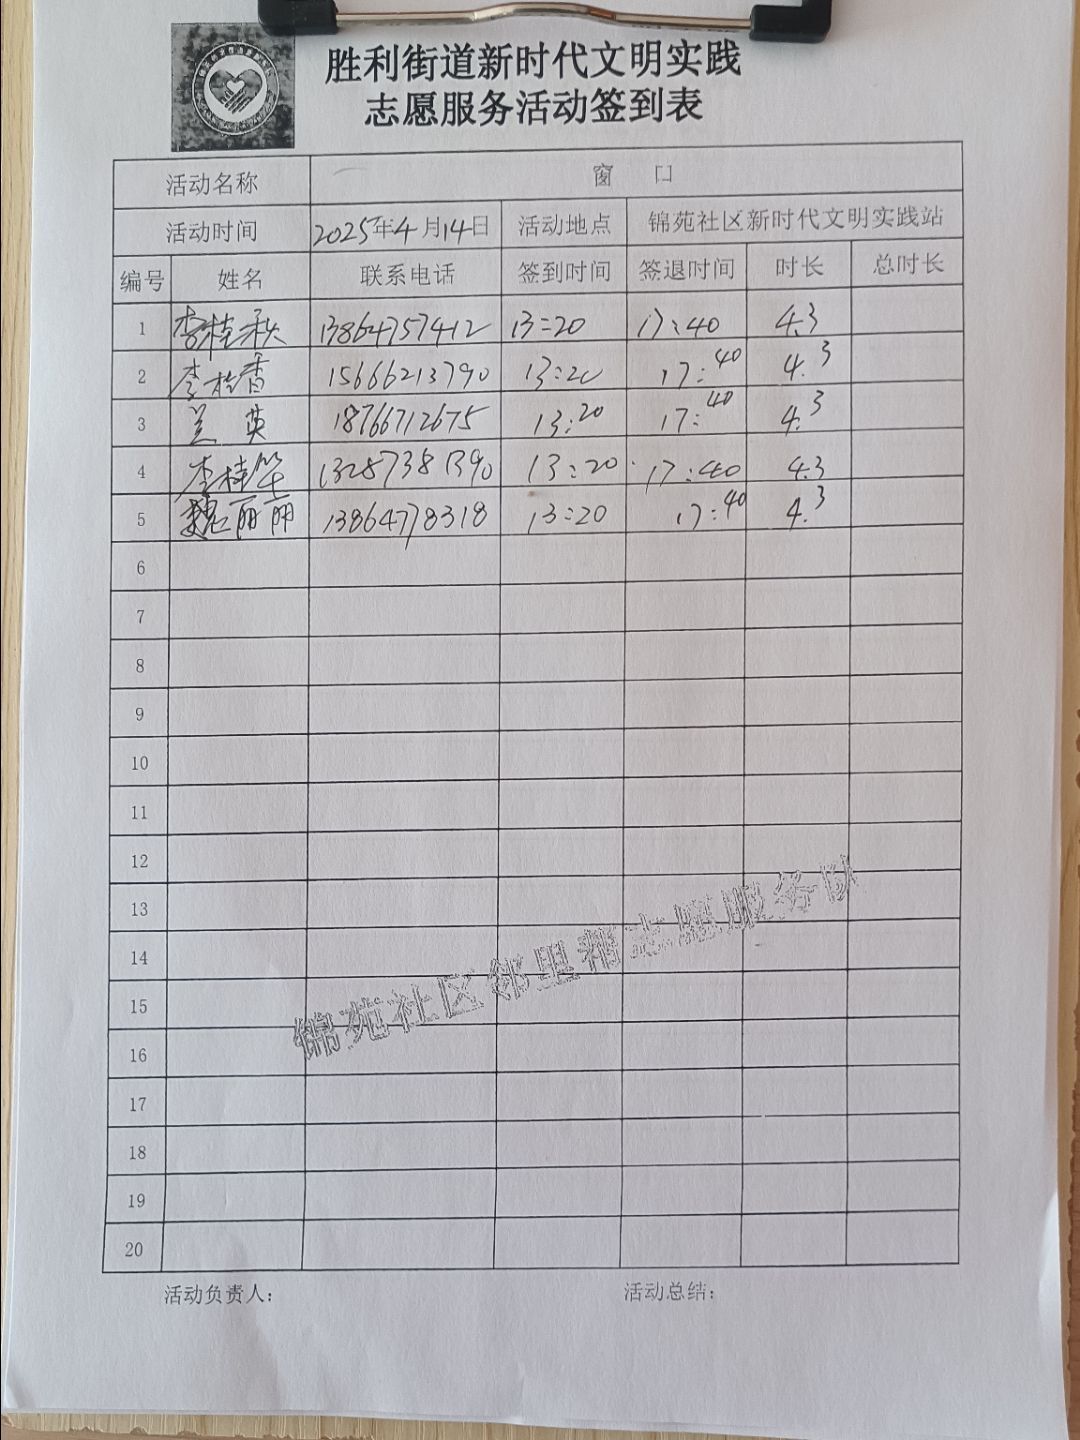 胜利街道新时代文明实践
志愿服务活动签到表
活动名称 窗 口
活动时间 2025年4月14日 活动地点 锦苑社区新时代文明实践站
编号 姓名 联系电话 签到时间 签退时间 时长 总时长
1 李桂秋 13864757412 13:20 17:40 4.3
2 李桂香 15666213790 13:20 17:40 4.3
3 兰英 18766712675 13:20 17:40 4.3
4 李桂华 13287381390 13:20 17:40 4.3
5 魏丽丽 13864778318 13:20 17:40 4.3
6
7
8
9
10
11
12
13
14
15
16
17
18
19
20
锦苑社区邻里帮志愿服务队
活动负责人: 活动总结: